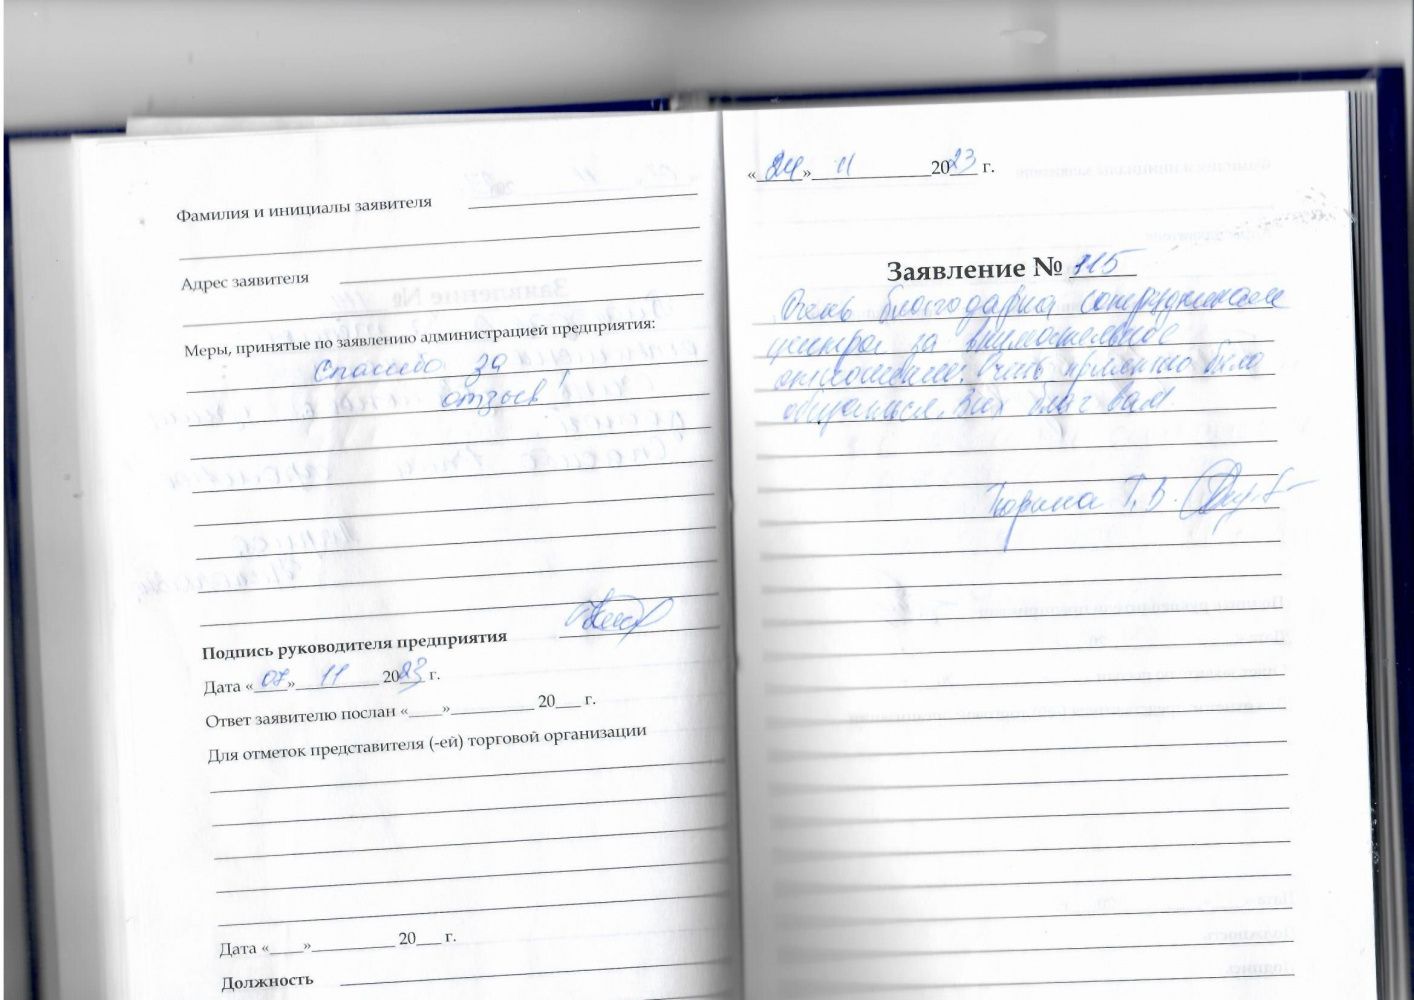 Фамилия и инициалы заявителя
Адрес заявителя
Меры, принятые по заявлению администрацией предприятия:
Спасибо за
отзыв!
Подпись руководителя предприятия
Дата «07» 11 2023 г.
Ответ заявителю послан «____»__________ 20___ г.
Для отметок представителя (-ей) торговой организации
Дата «____»__________ 20___ г.
Должность
«24» 11 2023 г.
Заявление № 115
Очень благодарна сотрудникам
центра за внимательное
отношение. Очень приятно было
общаться. Всех благ вам.
Т. В.